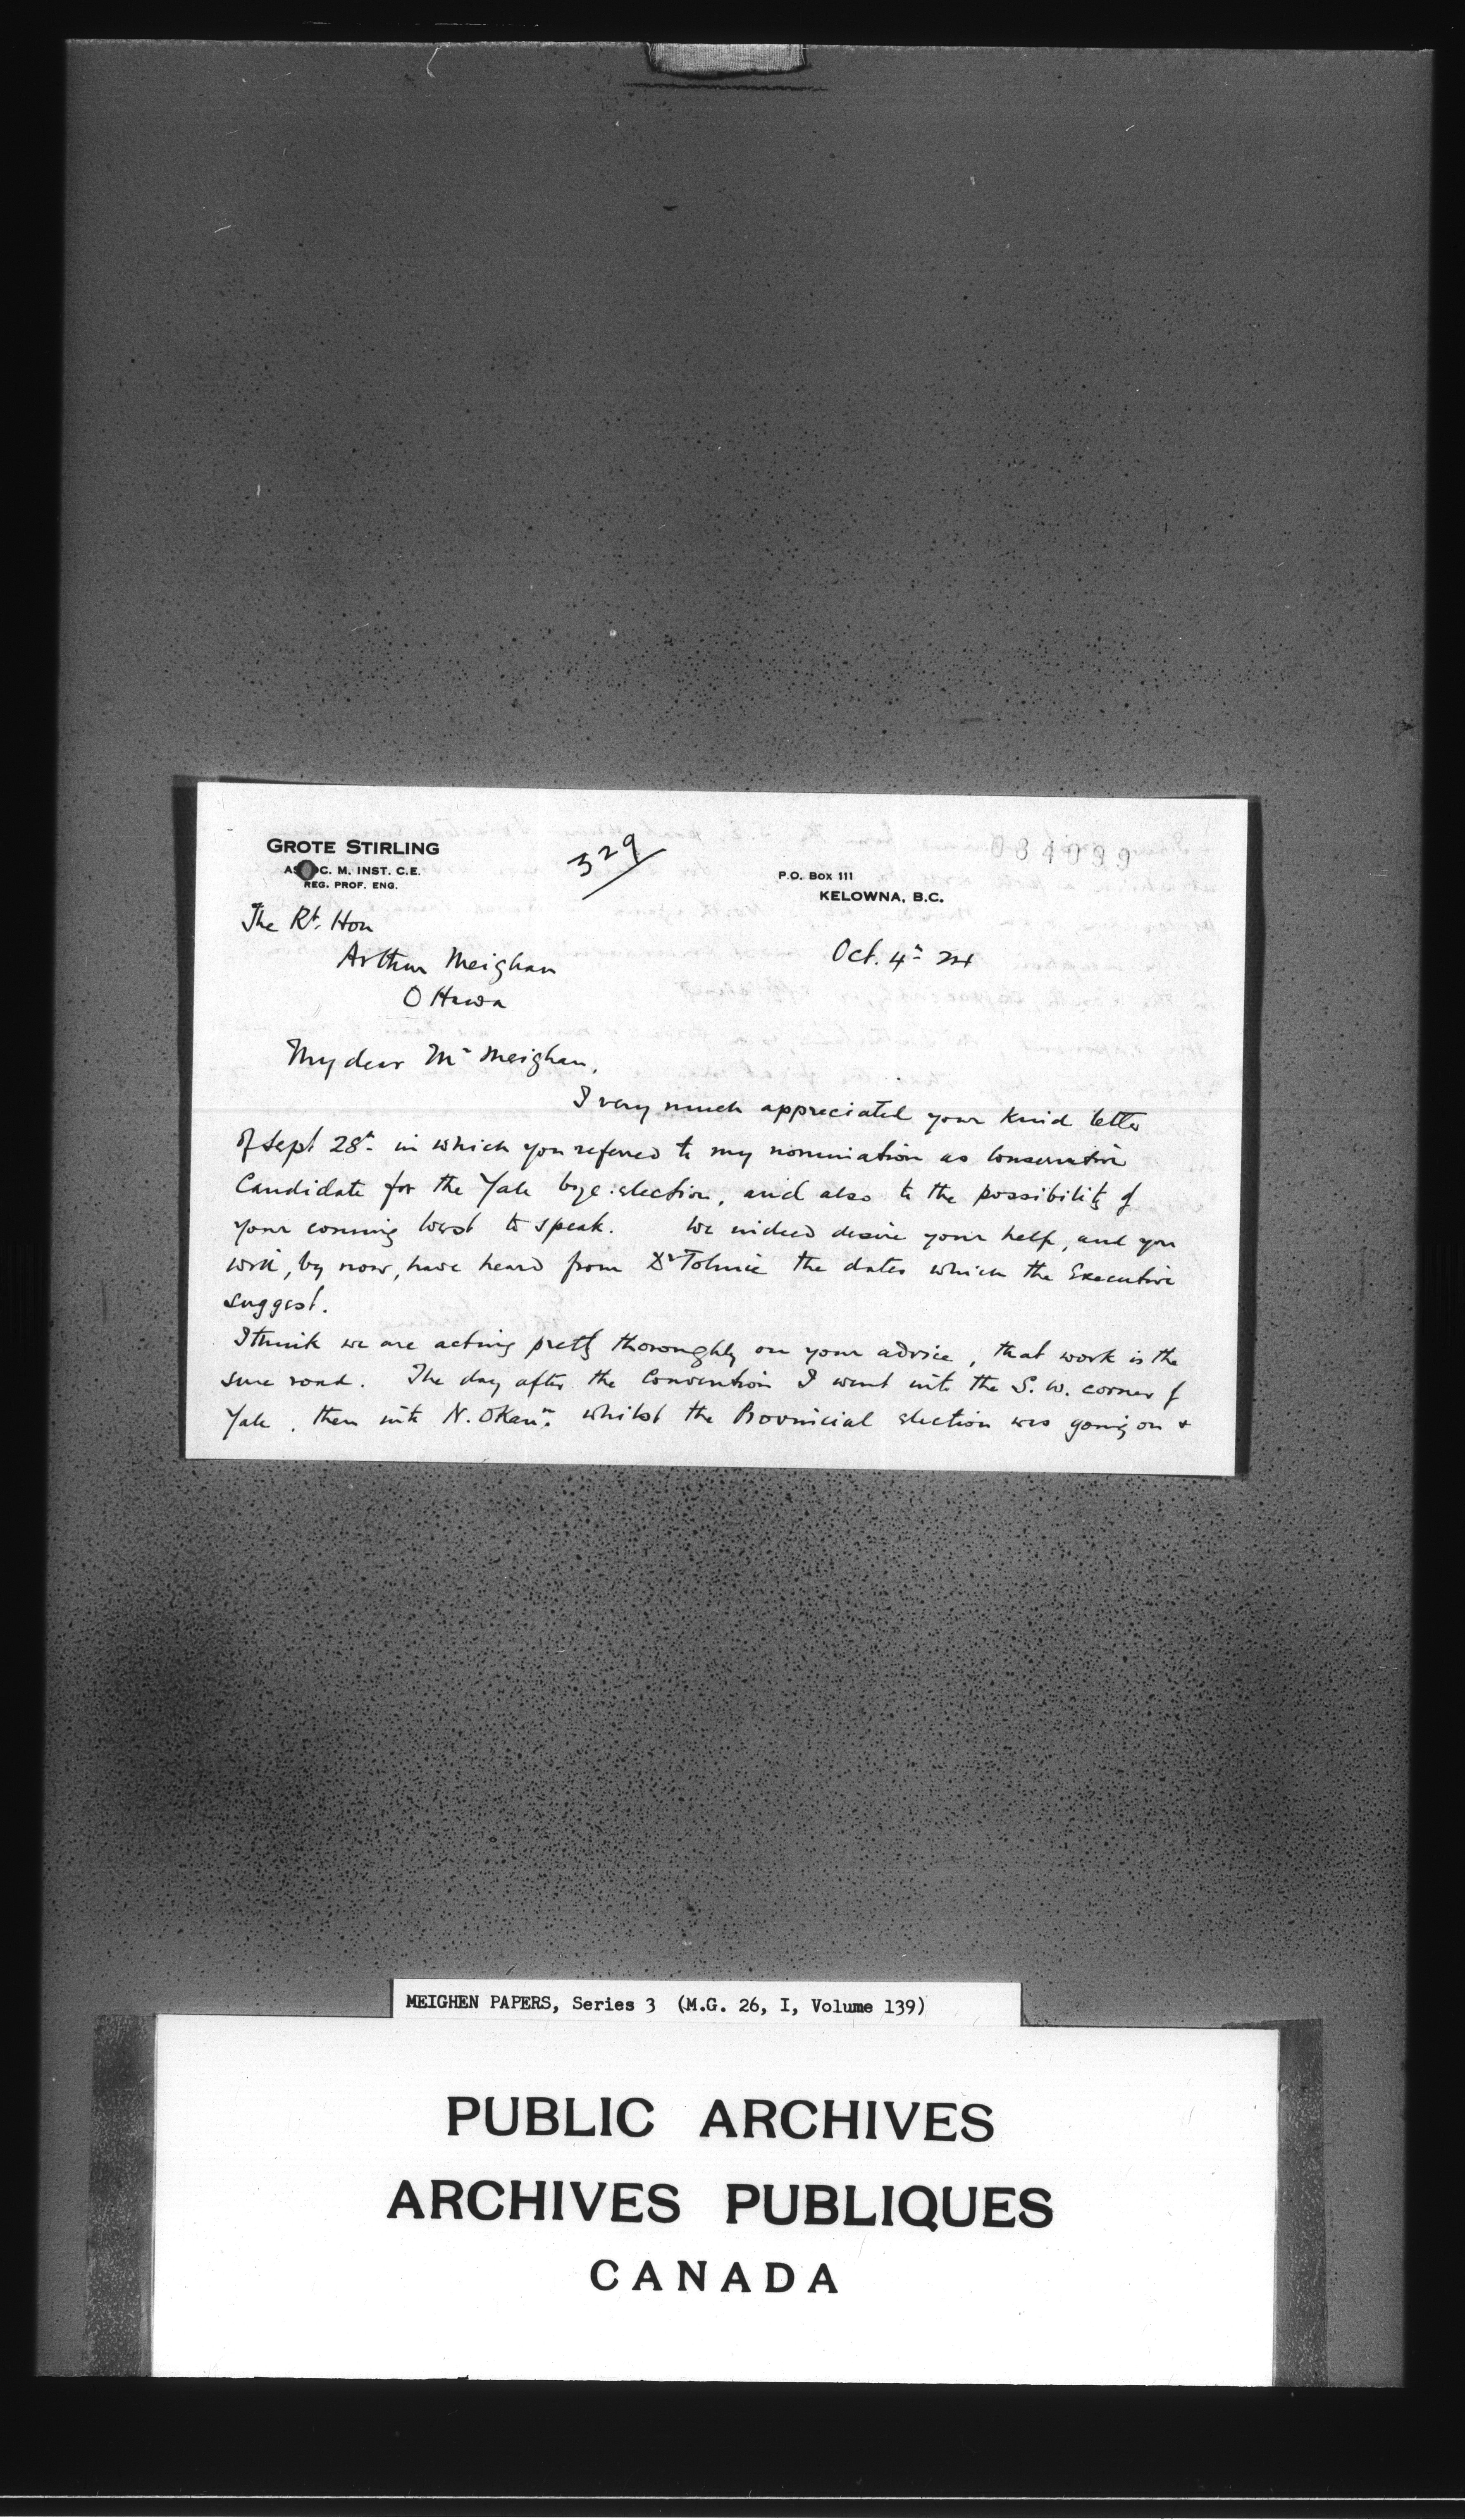 GROTE STIRLING
C. M. INST. C.E.
REG. PROF. ENG.
329
084099
P.O. Box 111
KELOWNA, B.C.
The Rt. Hon
Arthur Meighan
Ottawa
Oct. 4th 24
My dear Mr Meighan,
I very much appreciated your kind letter
of Sept 28th in which you referred to my nomination as Conservative
Candidate for the Yale bye-election, and also to the possibility of
your coming West to speak. We indeed desire your help, and you
will, by now, have heard from Dr Tolmie the dates which the Executive
suggest.
I think we are acting pretty thoroughly on your advice, that work is the
sure road. The day after the Convention I went into the S.W. corner of
Yale, then into N. Okan. whilst the Provincial election was going on +
MEIGHEN PAPERS, Series 3 (M.G. 26, I, Volume 139)
PUBLIC ARCHIVES
ARCHIVES PUBLIQUES
CANADA